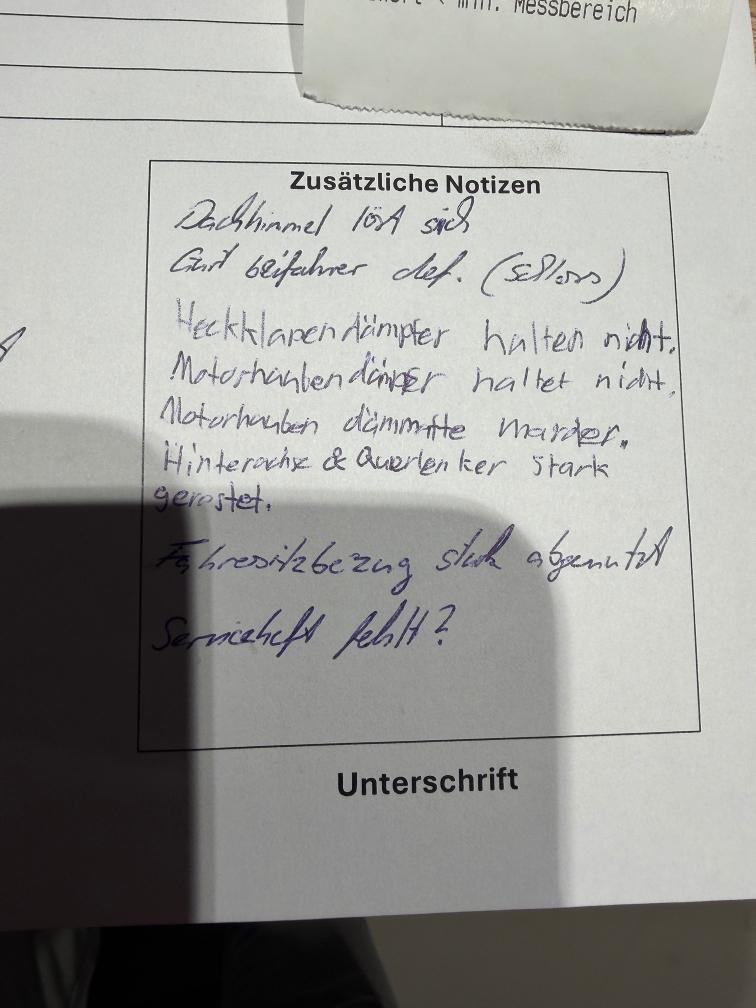 < min. Messbereich
Zusätzliche Notizen
Dachhimmel löst sich
Gurt beifahrer def. (Schloss)
Heckklapendämpfer halten nicht.
Motorhaubendämper haltet nicht.
Motorhauben dämmatte marder.
Hinterachse & Querlenker stark
gerostet.
Fahresitzbezug stark abgenutzt
Serviceheft fehlt?
Unterschrift